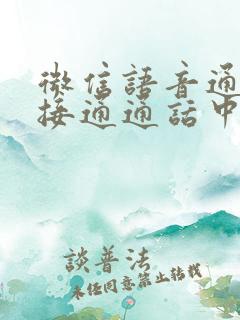 微信語音通
接通通話中
談普法
未经同意禁止转载